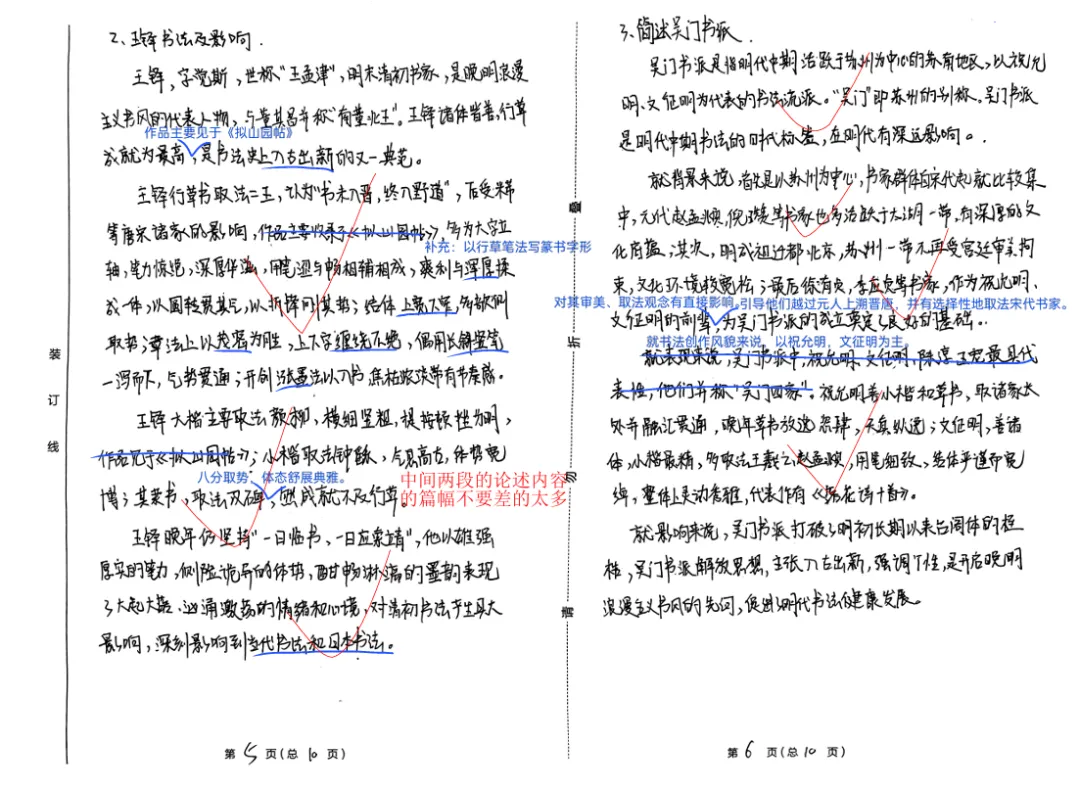 2、王铎书法及影响.
王铎，字觉斯，世称“王孟津”，明末清初书家，是晚明浪漫
主义书风的代表人物，与董其昌并称“南董北王”。王铎诸体皆善，行草
作品主要见于《拟山园帖》
成就为最高，是书法史上入古出新的又一典范。
王铎行草书取法二王，认为“书未入晋，终入野道”，后受米芾
等唐宋诸家的影响，作品主要收录于《拟山园帖》，多为大字立
补充：以行草笔法写篆书字形
轴，笔力惊绝，深厚华滋，用笔涩与畅相辅相成，爽利与浑厚揉
成一体，以圆转贯其气，以折挫间其势；结体上宽下窄，多欹侧
取势；章法上以茂密为胜，上下字缠绕不绝，偶用长绵坚笔
一泻而下，气势贯通；开创涨墨法以入书，焦枯浓淡带有节奏感。
王铎大楷主要取法颜柳，横细竖粗，提按顿挫分明，
作品见于《拟山园帖》；小楷取法钟繇，气息高古，体势宽
八分取势，体态舒展典雅。
博；其隶书，取法汉碑，但成就不及行草。
中间两段的论述内容
的篇幅不要差的太多
王铎晚年仍坚持“一日临书，一日应索请”，他以雄强
厚实的笔力，倾险诡异的体势，酣畅淋漓的墨韵表现
了大起大落、汹涌激荡的情绪和心境，对清初书法产生具大
影响，深刻影响到当代书法和日本书法。
第 5 页(总 10 页)
装
订
线
叠
折
勿
请
3、简述吴门书派.
吴门书派是指明代中期活跃于苏州为中心的苏南地区，以祝允
明、文征明为代表的书法流派。“吴门”即苏州的别称。吴门书派
是明代中期书法的时代标签，在明代有深远影响。
就背景来说，首先是以苏州为中心，书家群体自宋代起就比较集
中，元代赵孟頫，倪瓒等书家也多活跃于太湖一带，有深厚的文
化府蕴；其次，明成祖迁都北京，苏州一带不再受宫廷审美拘
束，文化环境较宽松；最后徐有贞，李应祯等书家，作为祝允明、
对其审美、取法观念有直接影响。引导他们越过元人上溯晋唐，并有选择性地取法宋代书家。
文征明的前辈，为吴门书派的成立奠定了良好的基础.
就书法创作风貌来说，以祝允明，文征明为主。
就表现来说，吴门书派中，祝允明，文征明，陈淳，王宠最具代
表性，他们并称“吴门四家”。祝允明善小楷和草书，取诸家长
处并融汇贯通，晚年草书放逸恣肆，天真纵逸；文征明，善诸
体，小楷最精，多取法王羲之赵孟頫，用笔细致，结体平适而宽
绰，整体上灵动秀雅，代表作有《落花诗十首》。
就影响来说，吴门书派打破了明初长期以来台阁体的桎
梏，吴门书派解放思想，主张入古出新，强调个性，是开启晚明
浪漫主义书风的先河，促进明代书法健康发展。
第 6 页(总 10 页)